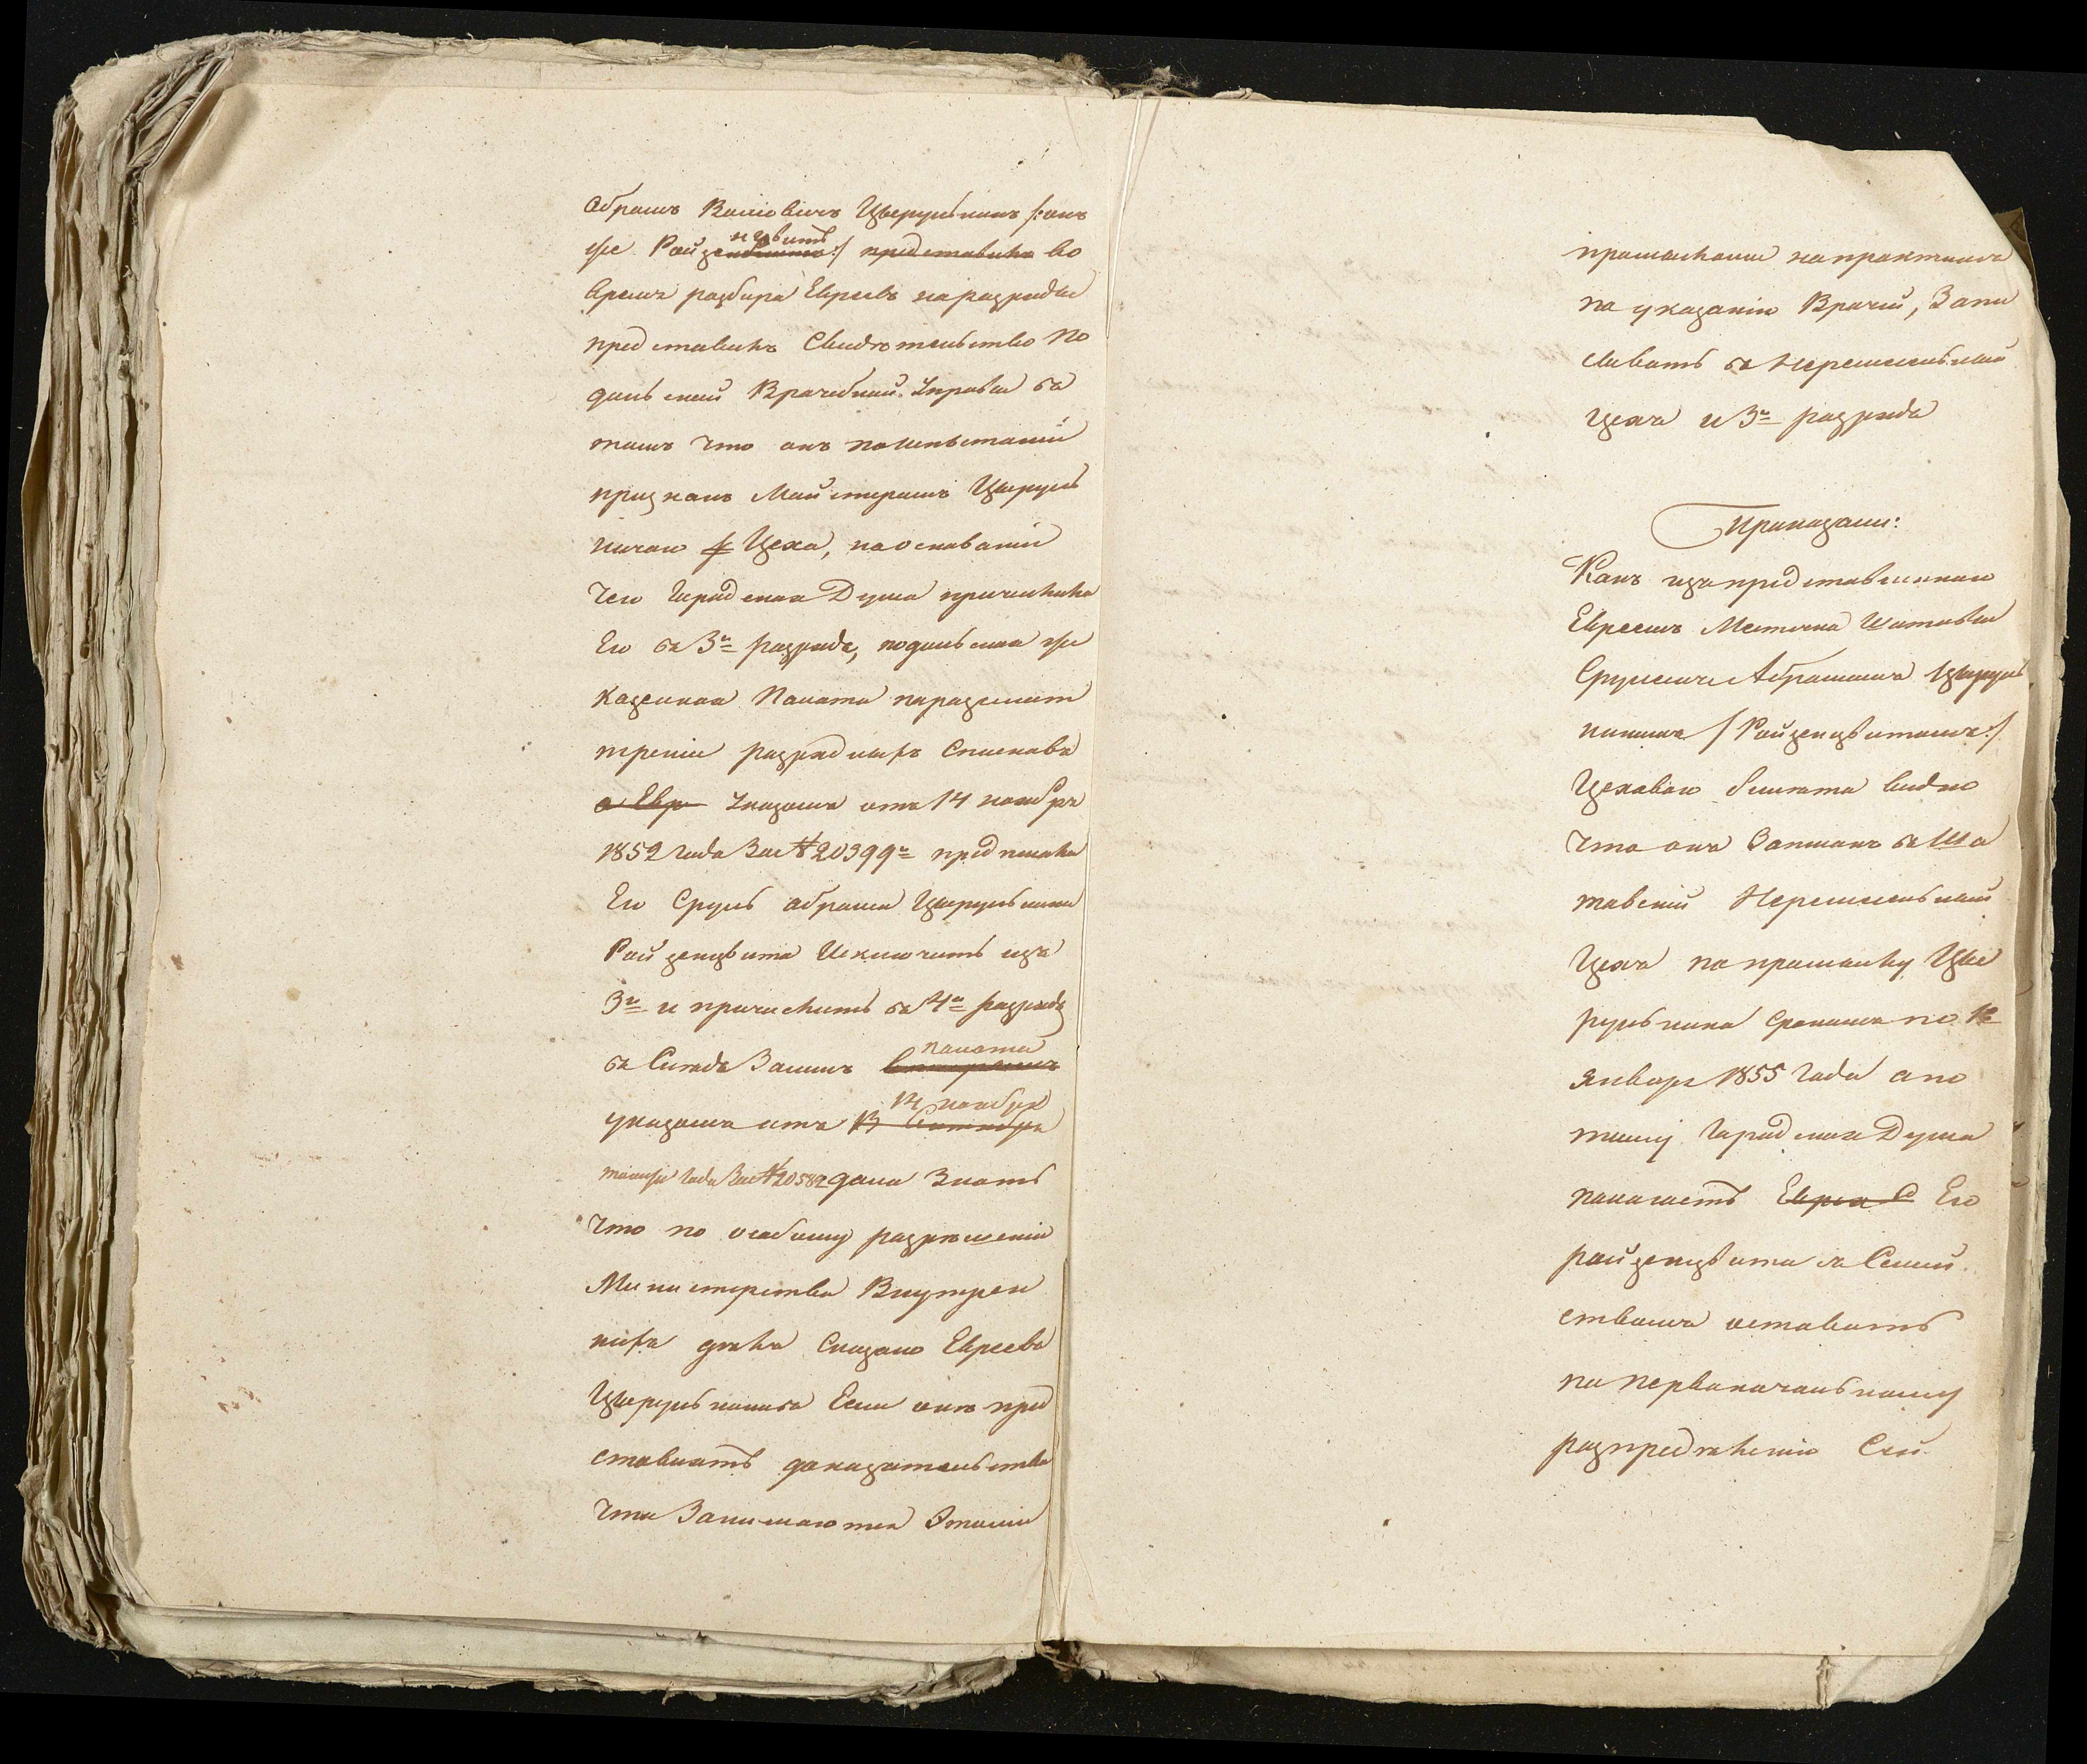 Абрамъ Вольковичъ Цверульникъ /: онъ
же Райзенцвитъ :/ представилъ во
время разбора Евреевъ на разряды
представилъ Свидѣтельство По
дольской Врачебной Управы въ
томъ что онъ по испытаній
признанъ Майстеромъ Цырул
ничаго Цеха, на основаніи
чего Городская Дума причислила
Его въ 3й разрядъ, подольская же
Казенная Палата по разсмот
треніи разрядныхъ Списковъ
о Евр Указомъ отъ 14 ноября
1852 года За № 20399м предписала
Его Сруль Абрама Цырульника
Райзенцвита Исключить изъ
3го и причислить въ 4й разрядъ
въ Слѣдъ Засимъ Палата
указомъ отъ 13 Сентября 14 ноября
того же года За № 20582 дала Знать
что по особому разрѣшенію
Министерства Внутрен
нихъ дѣлъ Сказано Евреевъ
Цырульниковъ Если они пред
ставлятъ доказательства
что Занимаются Этимъ
промысломъ на практике
по указанію Врачей, Запи
сывать въ Неремесленный
цехъ и 3й разрядъ
Приказали:
Какъ изъ представленнаго
Евреемъ Местечка Шатавы
Срулемъ Абрамомъ Цырул
никомъ /: Райзенцвитомъ :/
Цеховаго билета видно
что онъ Записанъ въ Ша
тавскій Неремесленный
Цехъ по промыслу Цы
рульника срокомъ по 1е
Января 1855 года а по
тому Городская Дума
полагаетъ Еврея С Его
райзенцвита съ Семей
ствомъ оставить
по первоначальному
разпредѣленію Сей